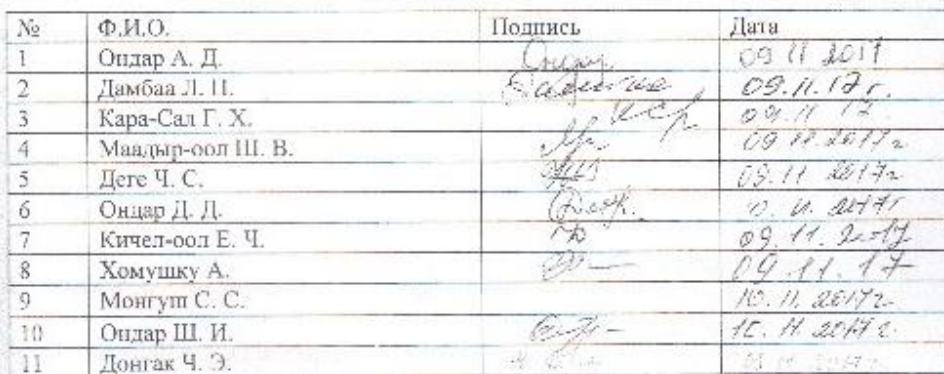 № Ф.И.О. Подпись Дата
1 Ондар А. Д. 09 11 2017
2 Дамбаа Л. П. 09.11.17 г.
3 Кара-Сал Г. Х. 09.11 17
4 Маадыр-оол Ш. В. 09 11 2017г
5 Деге Ч. С. 09.11 2017г
6 Ондар Д. Д. 2017г
7 Кичел-оол Е. Ч. 09.11.2017
8 Хомушку А. 09.11.17
9 Монгуш С. С. 10.11.2017г
10 Ондар Ш. И. 11 2017 г.
11 Донгак Ч. Э.